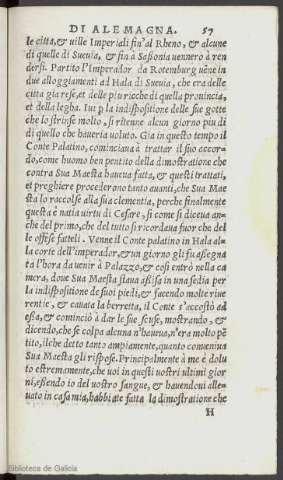 DI ALEMAGNA. 57
le citta, & ville Imperiali fin'al Rheno, & alcune
di quelle di Sueuia, & fin à Sassonia uennero à ren
dersi. Partito l'Imperador da Rotemburg uẽne in
due alloggiamenti ad Hala di Sueuia, che era delle
citta gia rese, et delle piu ricche di quella prouincia,
et della legha. Iui p la indispositione delle sue gotte
che lo strinse molto, si ritenne alcun giorno piu di
di quello che haueria uoluto. Gia in questo tempo il
Conte Palatino, cominciaua à trattar il suo accor-
do, come huomo ben pentito della dimostratione che
contra Sua Maesta haueua fatta, & questi trattati,
et preghiere procederono tanto auanti, che Sua Mae
sta lo raccolse alla sua clementia, perche finalmente
questa è natia uirtu di Cesare, si come si diceua an-
che del primo, che del tutto si ricordaua fuor che del
le offese fatteli. Venne il Conte palatino in Hala al
la corte dell'imperador, & un giorno gli fu assegna
ta l'hora da uenir à Palazzo, & cosi entrò nella ca
mera, doue Sua Maesta staua assisa in una sedia per
la indispositione de suoi piedi, & facendo molte riue
rentie, & cauata la berretta, il Conte s'accostò ad
essa, & cominciò à dar le sue scuse, mostrando, &
dicendo, che se colpa alcuna n'haueua, n'era molto pẽ
tito, il che detto tanto ampiamente, quanto conueniua
Sua Maesta gli rispose. Principalmente à me è dolu
to estremamente, che uoi in questi uostri ultimi gior
ni, essendo io del uostro sangue, & hauendoui alle-
uato in casa mia, habbiate fatta la dimostratione che
H
Biblioteca de Galicia